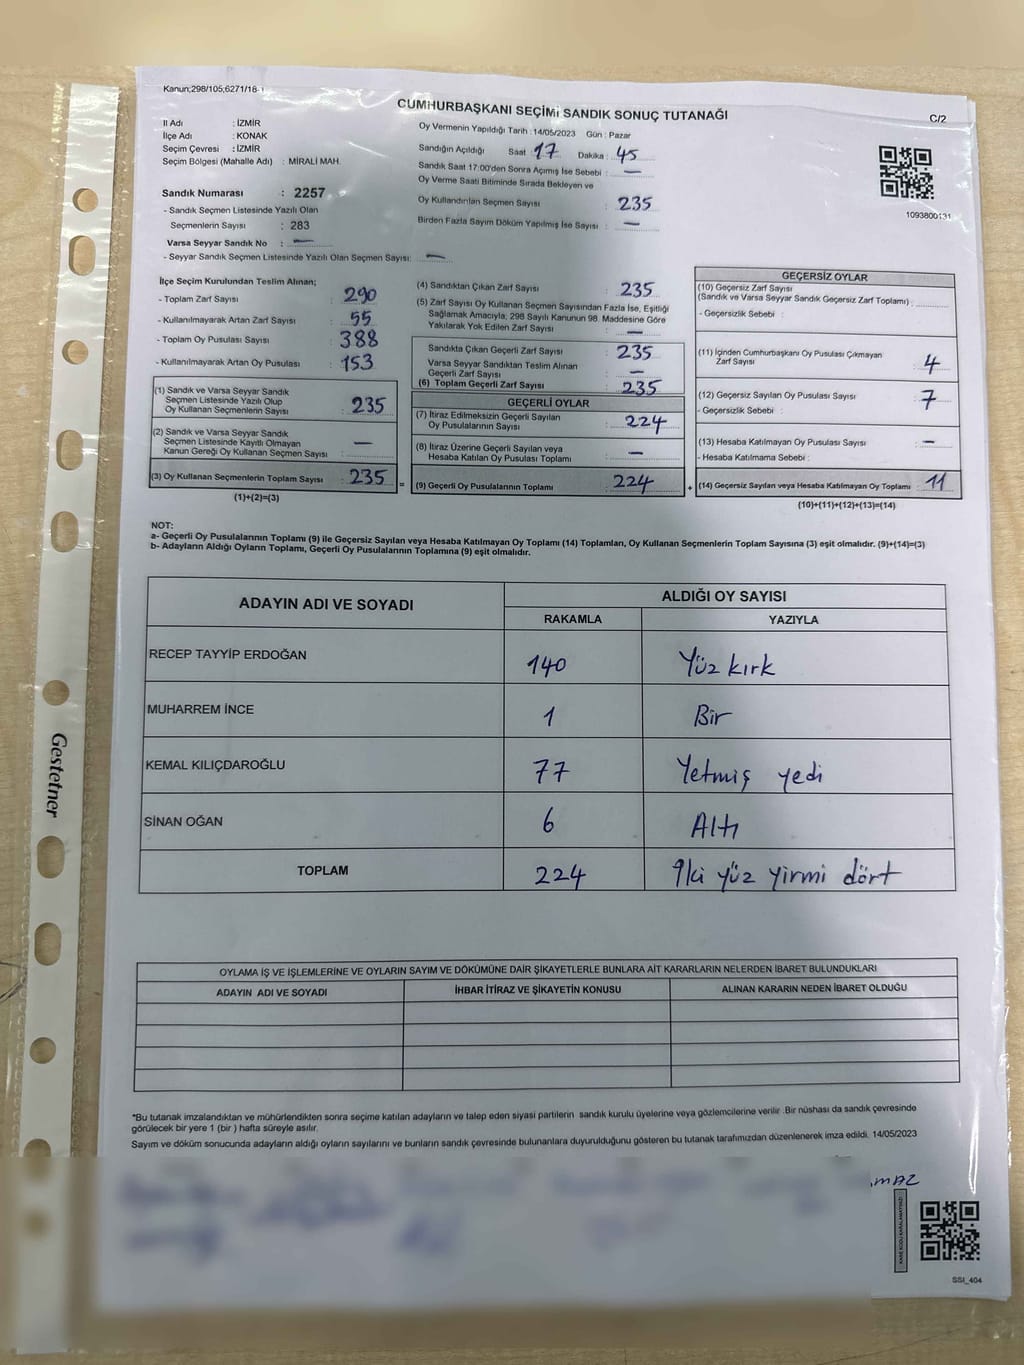 Kanun;298/105;6271/18-1
CUMHURBAŞKANI SEÇİMİ SANDIK SONUÇ TUTANAĞI
C/2
İl Adı : İZMİR
İlçe Adı : KONAK
Seçim Çevresi : İZMİR
Seçim Bölgesi (Mahalle Adı) : MİRALİ MAH.
Sandık Numarası : 2257
- Sandık Seçmen Listesinde Yazılı Olan
Seçmenlerin Sayısı : 283
Varsa Seyyar Sandık No : —
- Seyyar Sandık Seçmen Listesinde Yazılı Olan Seçmen Sayısı: —
Oy Vermenin Yapıldığı Tarih : 14/05/2023 Gün : Pazar
Sandığın Açıldığı Saat 17 Dakika : 45
Sandık Saat 17:00'den Sonra Açımış İse Sebebi : —
Oy Verme Saati Bitiminde Sırada Bekleyen ve
Oy Kullandırılan Seçmen Sayısı : 235
Birden Fazla Sayım Döküm Yapılmış İse Sayısı : —
1093800131
İlçe Seçim Kurulundan Teslim Alınan;
- Toplam Zarf Sayısı : 290
- Kullanılmayarak Artan Zarf Sayısı : 55
- Toplam Oy Pusulası Sayısı : 388
- Kullanılmayarak Artan Oy Pusulası : 153
(1) Sandık ve Varsa Seyyar Sandık
Seçmen Listesinde Yazılı Olup
Oy Kullanan Seçmenlerin Sayısı : 235
(2) Sandık ve Varsa Seyyar Sandık
Seçmen Listesinde Kayıtlı Olmayan
Kanun Gereği Oy Kullanan Seçmen Sayısı : —
(3) Oy Kullanan Seçmenlerin Toplam Sayısı : 235
(1)+(2)=(3)
=
(4) Sandıktan Çıkan Zarf Sayısı : 235
(5) Zarf Sayısı Oy Kullanan Seçmen Sayısından Fazla İse, Eşitliği
Sağlamak Amacıyla; 298 Sayılı Kanunun 98. Maddesine Göre
Yakılarak Yok Edilen Zarf Sayısı : —
Sandıkta Çıkan Geçerli Zarf Sayısı : 235
Varsa Seyyar Sandıktan Teslim Alınan
Geçerli Zarf Sayısı : —
(6) Toplam Geçerli Zarf Sayısı : 235
GEÇERLİ OYLAR
(7) İtiraz Edilmeksizin Geçerli Sayılan
Oy Pusulalarının Sayısı : 224
(8) İtiraz Üzerine Geçerli Sayılan veya
Hesaba Katılan Oy Pusulası Toplamı : —
(9) Geçerli Oy Pusulalarının Toplamı : 224
+
GEÇERSİZ OYLAR
(10) Geçersiz Zarf Sayısı
(Sandık ve Varsa Seyyar Sandık Geçersiz Zarf Toplamı) :
- Geçersizlik Sebebi :
(11) İçinden Cumhurbaşkanı Oy Pusulası Çıkmayan
Zarf Sayısı : 4
(12) Geçersiz Sayılan Oy Pusulası Sayısı : 7
- Geçersizlik Sebebi :
(13) Hesaba Katılmayan Oy Pusulası Sayısı : —
- Hesaba Katılmama Sebebi :
(14) Geçersiz Sayılan veya Hesaba Katılmayan Oy Toplamı : 11
(10)+(11)+(12)+(13)=(14)
NOT:
a- Geçerli Oy Pusulalarının Toplamı (9) ile Geçersiz Sayılan veya Hesaba Katılmayan Oy Toplamı (14) Toplamları, Oy Kullanan Seçmenlerin Toplam Sayısına (3) eşit olmalıdır. (9)+(14)=(3)
b- Adayların Aldığı Oyların Toplamı, Geçerli Oy Pusulalarının Toplamına (9) eşit olmalıdır.
ADAYIN ADI VE SOYADI ALDIĞI OY SAYISI
RAKAMLA YAZIYLA
RECEP TAYYİP ERDOĞAN 140 Yüz kırk
MUHARREM İNCE 1 Bir
KEMAL KILIÇDAROĞLU 77 Yetmiş yedi
SİNAN OĞAN 6 Altı
TOPLAM 224 İki yüz yirmi dört
OYLAMA İŞ VE İŞLEMLERİNE VE OYLARIN SAYIM VE DÖKÜMÜNE DAİR ŞİKAYETLERLE BUNLARA AİT KARARLARIN NELERDEN İBARET BULUNDUKLARI
ADAYIN ADI VE SOYADI İHBAR İTİRAZ VE ŞİKAYETİN KONUSU ALINAN KARARIN NEDEN İBARET OLDUĞU
*Bu tutanak imzalandıktan ve mühürlendikten sonra seçime katılan adayların ve talep eden siyasi partilerin sandık kurulu üyelerine veya gözlemcilerine verilir .Bir nüshası da sandık çevresinde
görülecek bir yere 1 (bir ) hafta süreyle asılır.
Sayım ve döküm sonucunda adayların aldığı oyların sayılarını ve bunların sandık çevresinde bulunanlara duyurulduğunu gösteren bu tutanak tarafımızdan düzenlenerek imza edildi. 14/05/2023
KARE KODU KARALAMAYINIZ!
SSI_404
Gestetner